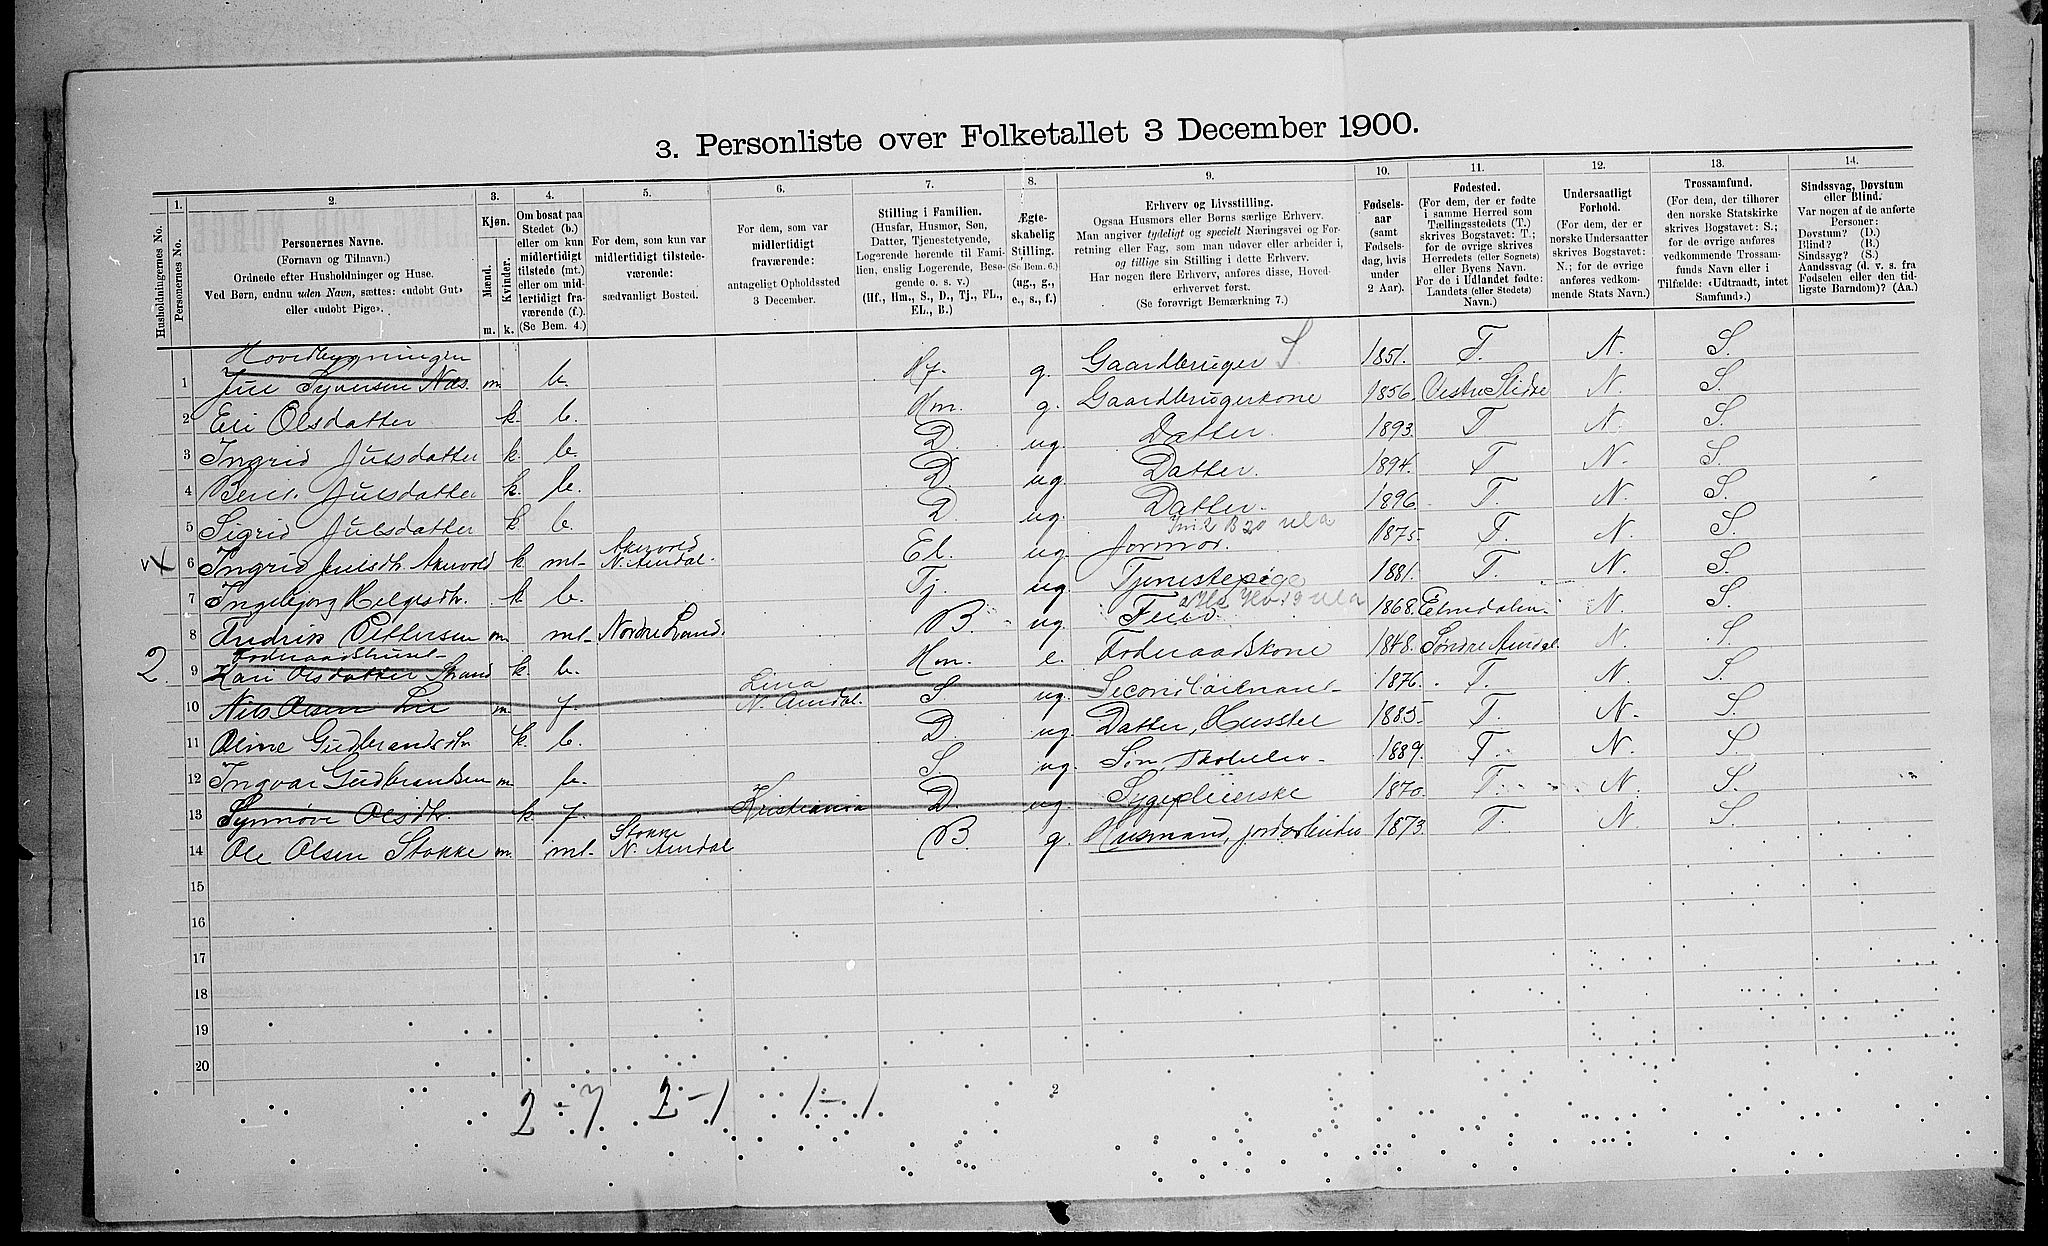 3. Personliste over Folketallet 3 December 1900.
1. 2. 3. 4. 5. 6. 7. 8. 9. 10. 11. 12. 13. 14.
Husholdningernes No.
Personernes No.
Personernes Navne.
(Fornavn og Tilnavn.)
Ordnede efter Husholdninger og Huse.
Ved Børn, endnu uden Navn, sættes: «udobt Gut»
eller «udobt Pige».
Kjøn.
Mænd.
Kvinder.
m. k.
Om bosat paa
Stedet (b.)
eller om kun
midlertidigt
tilstede (mt.)
eller om mid-
lertidigt fra-
værende (f.)
(Se Bem. 4.)
For dem, som kun var
midlertidigt tilstede-
værende:
sædvanligt Bosted.
For dem, som var
midlertidigt
fraværende:
antageligt Opholdssted
3 December.
Stilling i Familien.
(Husfar, Husmor, Søn,
Datter, Tjenestetyende,
Logerende hørende til Fami-
lien, enslig Logerende, Besø-
gende o. s. v.)
(Hf., Hm., S., D., Tj., FL.,
EL., B.)
Ægte-
skabelig
Stilling.
(Se Bem. 6.)
(ug., g.,
e., s., f.)
Erhverv og Livsstilling.
Ogsaa Husmors eller Børns særlige Erhverv.
Man angiver tydeligt og specielt Næringsvei og For-
retning eller Fag, som man udøver eller arbeider i,
og tillige sin Stilling i dette Erhverv.
Har nogen flere Erhverv, anføres disse, Hoved-
erhvervet først.
(Se forøvrigt Bemærkning 7.)
Fødsels-
aar
(samt
Fødsels-
dag, hvis
under
2 Aar).
Fødested.
(For dem, der er fødte
i samme Herred som
Tællingsstedets (T.)
skrives Bogstavet: T.;
for de øvrige skrives
Herredets (eller Sognets)
eller Byens Navn.
For de i Udlandet fødte:
Landets (eller Stedets)
Navn.)
Undersaatligt
Forhold.
(For dem, der er
norske Undersaatter
skrives Bogstavet:
N.; for de øvrige
anføres vedkom-
mende Stats Navn.)
Trossamfund.
(For dem, der tilhører
den norske Statskirke
skrives Bogstavet: S.;
for de øvrige anføres
vedkommende Trossam-
funds Navn eller i
Tilfælde: «Udtraadt, intet
Samfund».)
Sindssvag, Døvstum
eller Blind.
Var nogen af de anførte
Personer:
Døvstum? (D.)
Blind? (B.)
Sindssyg? (S.)
Aandssvag (d. v. s. fra
Fødselen eller den tid-
ligste Barndom)? (Aa.)
Hovedbygningen
1 Jul Syversen Næs. m. b. Hf. g. Gaardbruger S 1851. T. N. S.
2 Eli Olsdatter k. b. Hm. g. Gaardbrugerkone 1856. Vestre Slidre N. S.
3 Ingrid Julsdatter k. b. D. ug. Datter. 1893. T N. S.
4 Berit Julsdatter k. b. D. ug. Datter. 1894. T N. S.
5 Sigrid Julsdatter k b. D. ug. Datter. 1896. T. N. S.
6 Ingrid Julsdtr. k mt. N. Aurdal. El. ug. Jormor. 1875. T. N. S.
7 Ingebjørg Helgesdtr. k. b. Tj. ug. Tjenestepige 1881. T. N. S.
8 Fredrik Pettersen m. mt. Nordre Land. B. ug. 1868. N. S.
2. Foderaadshuset
9 Kari Olsdatter Strand k. b. Hm. e. Foderaadskone 1848. Søndre Aurdal. N. S.
10 Nils Olsen Lie m. f. N. Aurdal. S ug. Secondløitnant 1876. T. N. S.
11 Oline Gudbrandsdtr. k. b. D. ug. Datter, Husstel 1885. T. N. S.
12 Ingvar Gudbrandsen m. b. S. ug. Søn, Skoleelev 1889. T. N. S.
13 Synnøve Olsdtr. k. f. Kristiania D. ug. Sygepleierske 1870. T. N. S.
14 Ole Olsen Stokke m. mt. Stokke N. Aurdal B. g. Husmand, jordarbeider 1873. T. N. S
15
16
17
18
19
20
2
2-7 2-1 1-1